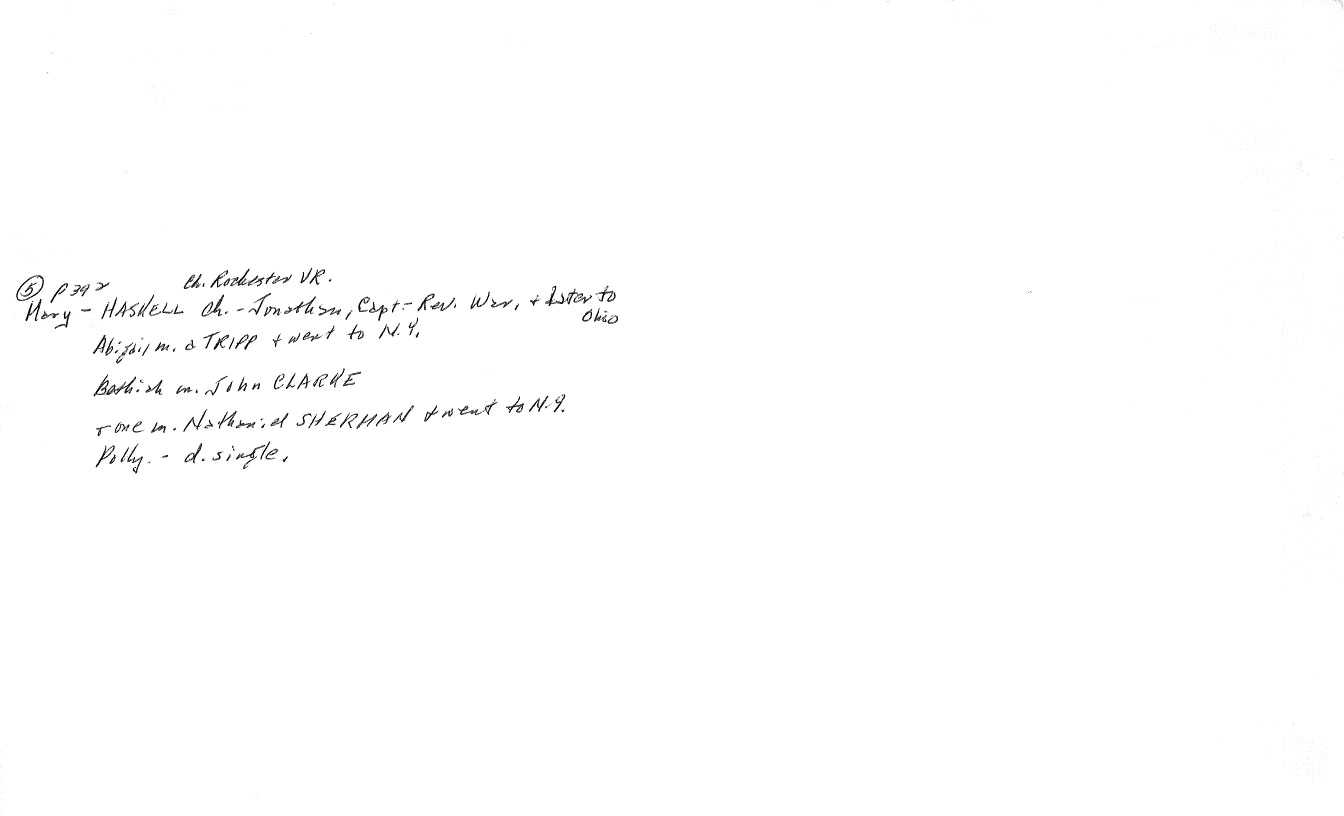 ⑤ p 392 Ch. Rochester VR.
Mary - HASKELL Ch. - Jonathan, Capt. - Rev. War, + later to
Ohio
Abigail m. a TRIPP + went to N.Y.
m. John CLARKE
one m. Nathaniel SHERMAN + went to N.Y.
Polly. - d. single.